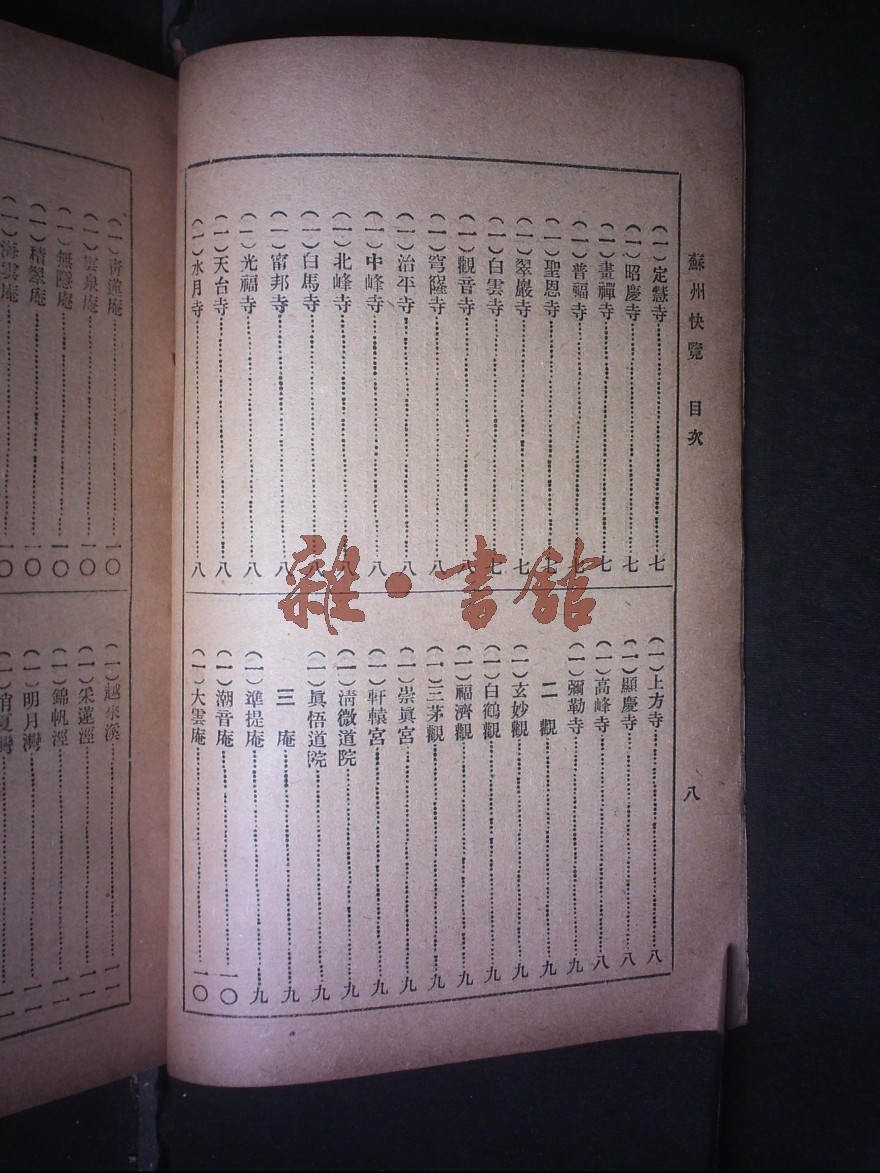 蘇州快覽 目次
八
(一)定慧寺……七
(一)昭慶寺……七
(一)畫禪寺……七
(一)普福寺……七
(一)聖恩寺……七
(一)翠巖寺……七
(一)白雲寺……七
(一)觀音寺……八
(一)穹窿寺……八
(一)治平寺……八
(一)中峰寺……八
(一)北峰寺……八
(一)白馬寺……八
(一)甯邦寺……八
(一)光福寺……八
(一)天台寺……八
(一)水月寺……八
(一)上方寺……八
(一)顯慶寺……八
(一)高峰寺……八
(一)彌勒寺……九
二 觀……九
(一)玄妙觀……九
(一)白鶴觀……九
(一)福濟觀……九
(一)三茅觀……九
(一)崇眞宮……九
(一)軒轅宮……九
(一)清微道院……九
(一)眞悟道院……九
三 庵……九
(一)準提庵……九
(一)潮音庵……一〇
(一)大雲庵……一〇
(一)靑蓮庵……一〇
(一)雲泉庵……一〇
(一)無隱庵……一〇
(一)精翠庵……一〇
(一)海雲庵……一〇
(一)越來溪……一一
(一)采蓮涇……一一
(一)錦帆涇……一一
(一)明月灣……一一
(一)消夏灣……一一
雜·書館